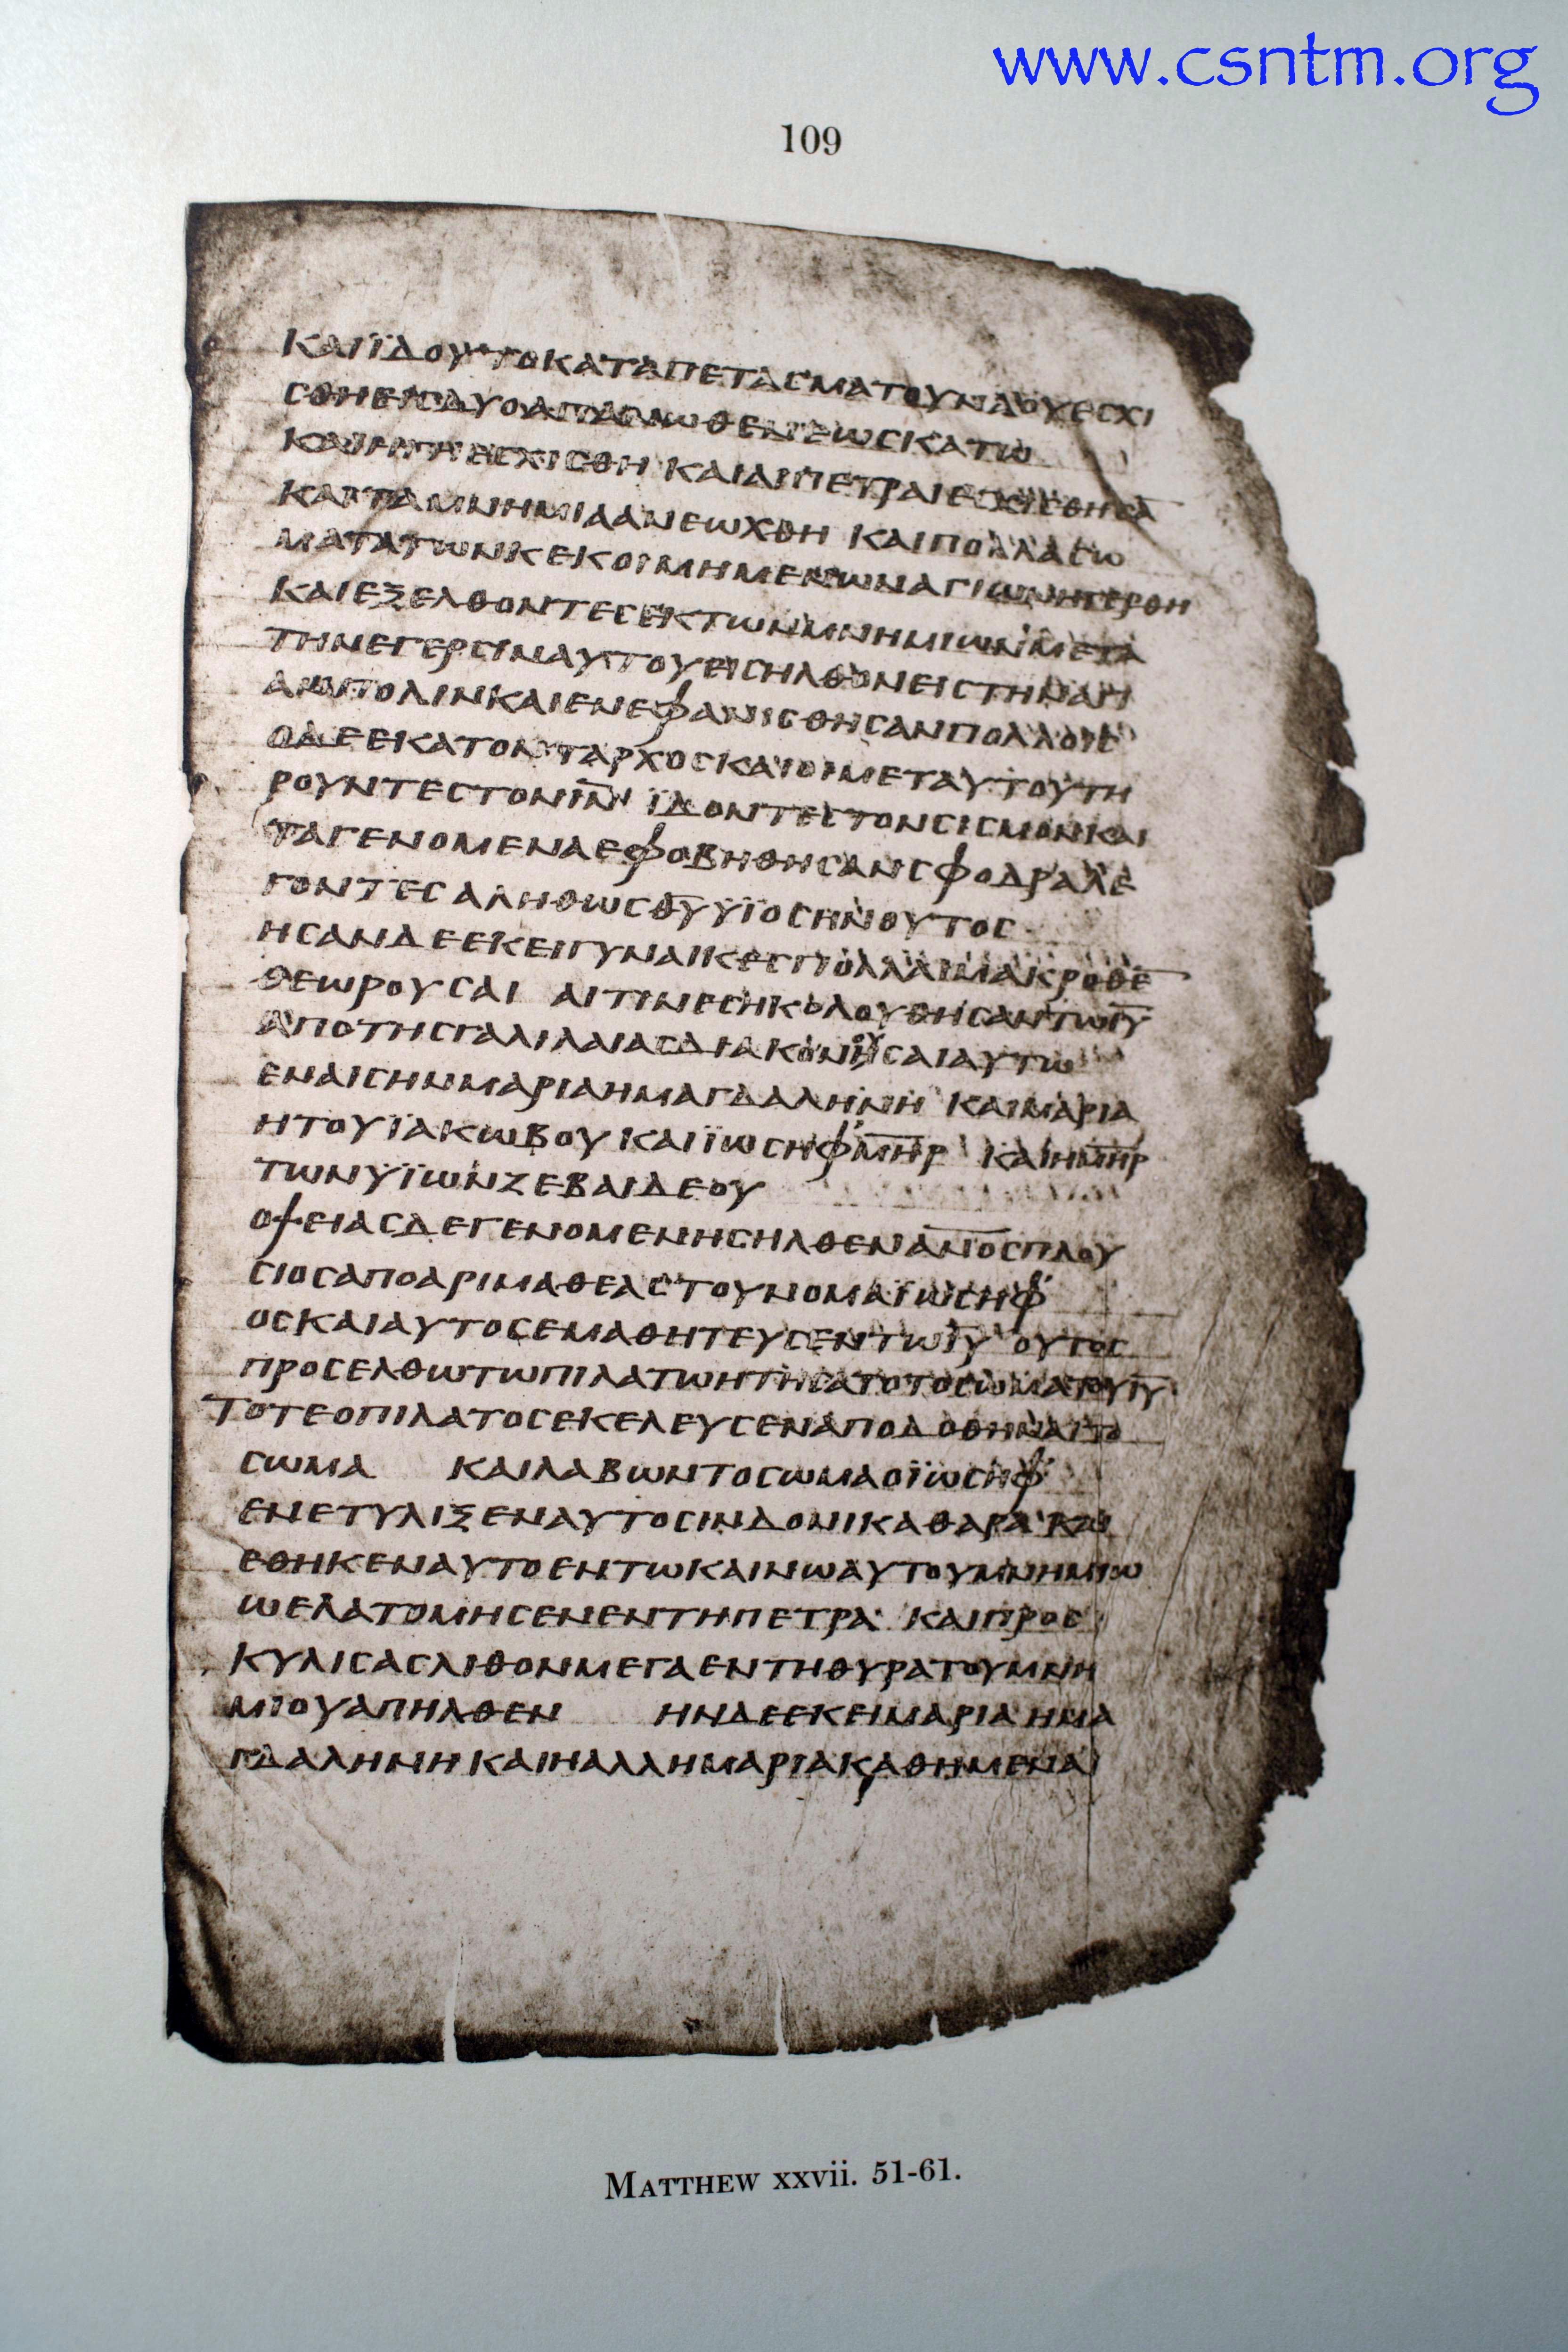 www.csntm.org
109
ΚΑΙΪΔΟΥΤΟΚΑΤΑΠΕΤΑCΜΑΤΟΥΝΑΟΥΕCΧΙ
CΘΗΕΙCΔΥΟΑΠΑΝΩΘΕΝΕΩCΚΑΤΩ
ΕCΧΙCΘΗ ΚΑΙΑΙΠΕΤΡΑΙΕCΧΙCΘΗCΑ̅
ΚΑΙΤΑΜΝΗΜΙΑΑΝΕΩΧΘΗ ΚΑΙΠΟΛΛΑCΩ
ΜΑΤΑΤΩΝΚΕΚΟΙΜΗΜΕΝΩΝΑΓΙΩΝΗΓΕΡΘΗ
ΚΑΙΕΞΕΛΘΟΝΤΕCΕΚΤΩΝΜΝΗΜΙΩΝΜΕΤΑ
ΤΗΝΕΓΕΡCΙΝΑΥΤΟΥΕΙCΗΛΘΟΝΕΙCΤΗΝΑΓΙ
ΑΝΠΟΛΙΝΚΑΙΕΝΕΦΑΝΙCΘΗCΑΝΠΟΛΛΟΙC
ΟΔΕΕΚΑΤΟΝΤΑΡΧΟCΚΑΙΟΙΜΕΤΑΥΤΟΥΤΗ
ΡΟΥΝΤΕCΤΟΝΙ̅Ν̅ ΪΔΟΝΤΕCΤΟΝCΙCΜΟΝΚΑΙ
ΤΑΓΕΝΟΜΕΝΑΕΦΟΒΗΘΗCΑΝCΦΟΔΡΑΛΕ
ΓΟΝΤΕCΑΛΗΘΩCΘ̅Υ̅ΥΪΟCΗΝΟΥΤΟC
ΗCΑΝΔΕΕΚΕΙΓΥΝΑΙΚΕCΠΟΛΛΑΙΜΑΚΡΟΘΕ̅
ΘΕΩΡΟΥCΑΙ ΑΙΤΙΝΕCΗΚΟΛΟΥΘΗCΑΝΤΩΙ̅Υ̅
ΑΠΟΤΗCΓΑΛΙΛΑΙΑCΔΙΑΚΟΝΗCΑΙΑΥΤΩ
ΕΝΑΙCΗΝΜΑΡΙΑΗΜΑΓΔΑΛΗΝΗ ΚΑΙΜΑΡΙΑ
ΗΤΟΥΪΑΚΩΒΟΥΚΑΙΪΩCΗΦ'Μ̅Η̅Ρ̅ ΚΑΙΗΜ̅Η̅Ρ̅
ΤΩΝΥΪΩΝΖΕΒΑΙΔΕΟΥ
ΟΨΕΙΑCΔΕΓΕΝΟΜΕΝΗCΗΛΘΕΝΑ̅Ν̅Ο̅C̅ΠΛΟΥ
CΙΟCΑΠΟΑΡΙΜΑΘΕΑCΤΟΥΝΟΜΑΪΩCΗΦ'
ΟCΚΑΙΑΥΤΟCΕΜΑΘΗΤΕΥCΕΝΤΩΙ̅Υ̅ ΟΥΤΟC
ΠΡΟCΕΛΘΩΤΩΠΙΛΑΤΩΗΤΗCΑΤΟΤΟCΩΜΑΤΟΥΙ̅Υ̅
ΤΟΤΕΟΠΙΛΑΤΟCΕΚΕΛΕΥCΕΝΑΠΟΔΟΘΗΝΑΙΤΟ
CΩΜΑ ΚΑΙΛΑΒΩΝΤΟCΩΜΑΟΪΩCΗΦ'
ΕΝΕΤΥΛΙΞΕΝΑΥΤΟCΙΝΔΟΝΙΚΑΘΑΡΑ ΚΑΙ
ΕΘΗΚΕΝΑΥΤΟΕΝΤΩΚΑΙΝΩΑΥΤΟΥΜΝΗΜΙΩ
ΩΕΛΑΤΟΜΗCΕΝΕΝΤΗΠΕΤΡΑ ΚΑΙΠΡΟC
ΚΥΛΙCΑCΛΙΘΟΝΜΕΓΑΕΝΤΗΘΥΡΑΤΟΥΜΝΗ
ΜΙΟΥΑΠΗΛΘΕΝ ΗΝΔΕΕΚΕΙΜΑΡΙΑΗΜΑ
ΓΔΑΛΗΝΗΚΑΙΗΑΛΛΗΜΑΡΙΑΚΑΘΗΜΕΝΑΙ
MATTHEW xxvii. 51-61.